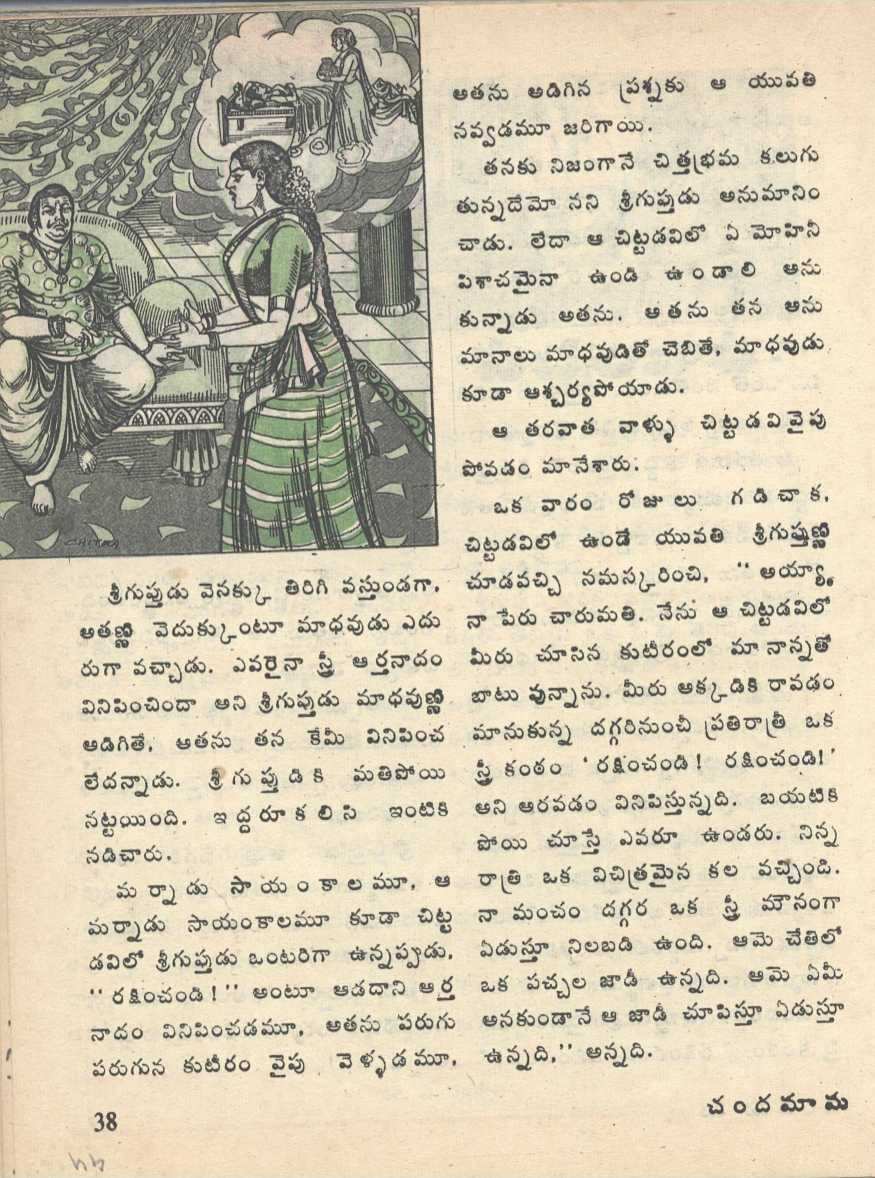 CHITRA
శ్రీగుప్తుడు వెనక్కు తిరిగి వస్తుండగా,
అతణ్ణి వెదుక్కుంటూ మాధవుడు ఎదు
రుగా వచ్చాడు. ఎవరైనా స్త్రీ ఆర్తనాదం
వినిపించిందా అని శ్రీగుప్తుడు మాధవుణ్ణి
అడిగితే, అతను తన కేమీ వినిపించ
లేదన్నాడు. శ్రీగుప్తుడికి మతిపోయి
నట్టయింది. ఇద్దరూకలిసి ఇంటికి
నడిచారు.
మర్నాడు సాయంకాలమూ, ఆ
మర్నాడు సాయంకాలమూ కూడా చిట్ట
డవిలో శ్రీగుప్తుడు ఒంటరిగా ఉన్నప్పుడు,
"రక్షించండి!" అంటూ ఆడదాని ఆర్త
నాదం వినిపించడమూ, అతను పరుగు
పరుగున కుటీరం వైపు వెళ్ళడమూ,
అతను అడిగిన ప్రశ్నకు ఆ యువతి
నవ్వడమూ జరిగాయి.
తనకు నిజంగానే చిత్తభ్రమ కలుగు
తున్నదేమో నని శ్రీగుప్తుడు అనుమానిం
చాడు. లేదా ఆ చిట్టడవిలో ఏ మోహినీ
పిశాచమైనా ఉండి ఉండాలి అను
కున్నాడు అతను. అతను తన అను
మానాలు మాధవుడితో చెబితే, మాధవుడు
కూడా ఆశ్చర్యపోయాడు.
ఆ తరవాత వాళ్ళు చిట్టడవివైపు
పోవడం మానేశారు.
ఒక వారం రోజులు గడిచాక,
చిట్టడవిలో ఉండే యువతి శ్రీగుప్తుణ్ణి
చూడవచ్చి నమస్కరించి, "అయ్యా,
నా పేరు చారుమతి. నేను ఆ చిట్టడవిలో
మీరు చూసిన కుటీరంలో మా నాన్నతో
బాటు వున్నాను. మీరు అక్కడికి రావడం
మానుకున్న దగ్గరినుంచీ ప్రతిరాత్రీ ఒక
స్త్రీ కంఠం 'రక్షించండి! రక్షించండి!'
అని అరవడం వినిపిస్తున్నది. బయటికి
పోయి చూస్తే ఎవరూ ఉండరు. నిన్న
రాత్రి ఒక విచిత్రమైన కల వచ్చింది.
నా మంచం దగ్గర ఒక స్త్రీ మౌనంగా
ఏడుస్తూ నిలబడి ఉంది. ఆమె చేతిలో
ఒక పచ్చల జాడీ ఉన్నది. ఆమె ఏమీ
అనకుండానే ఆ జాడీ చూపిస్తూ ఏడుస్తూ
ఉన్నది," అన్నది.
38
చందమామ